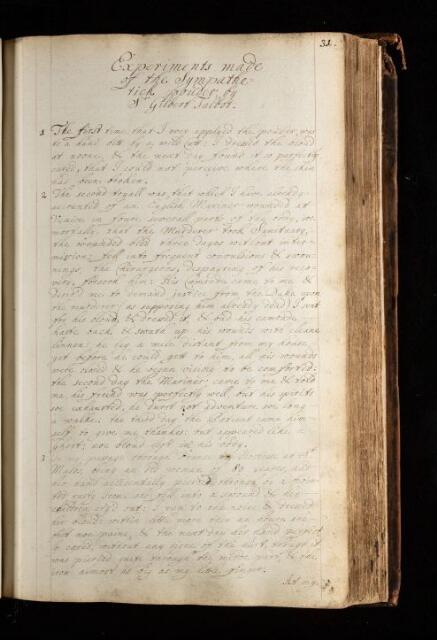 31.
Experiments made
of the Sympathe-
tick powder by
Sr Gilbert Talbot.
1 The first time that I very applyed the powder, was
to a hand cutt by a wild Catt: I dressed the blood
at noone, & the next day found it so perfectly
cured, that I could not perceive where the skin
had been broken.
2 The second tryall was, that which I have already
accounted of an English Mariner wounded at
Venice in foure severall parts of the body, so
mortally, that the Murderer took Sanctuary,
the wounded bled three dayes without inter-
mission: fell into frequent convulsions & swoo-
nings, the Chirurgeons, despayring of his reco-
very, forsook him: His Comrade came to me &
desired me to demand justice from the Duke upon
the murderer, as supposing him already dead: I sent
for his blood, & dressed it, & bad his comrade
haste back & swath up his wounds with cleane
linnen: he lay a mile distant from my house,
yet before he could gett to him, all his wounds
were closed & he began visibly to be comforted:
the second day the Mariner came to me & told
me, his friend was perfectly well, but his spirits
so exhausted, he durst not adventure soe long
a walke: the third day the Patient came him-
self to give me thanks: but appeared like a
Ghost; noe blood left in his body.
3 In my passage through France in Exercise at St
Maloes, being an old woman of 80 yeares,
her hand accidentally pierced through
fell into a swound & her
children cry'd out: I ran to the noise & dressed
her blood: within little more then an houre she
felt noe paine, & the next day her hand perfect
ly cured, without any signe of the hurt, though it
was pierced quite through the middle with
iron almost as big as my little finger.